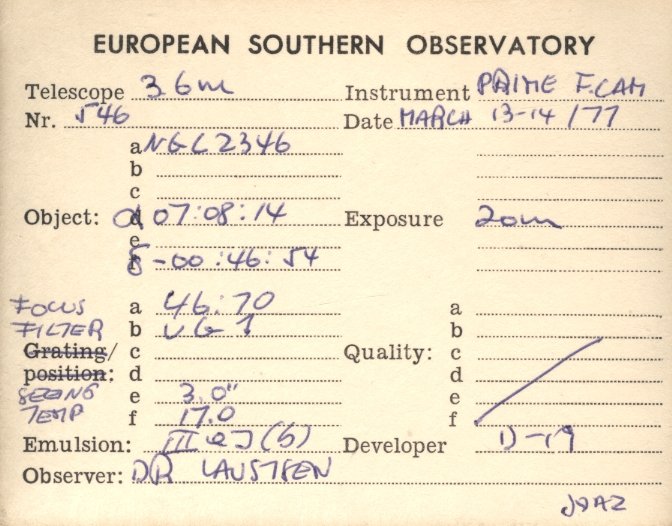 EUROPEAN SOUTHERN OBSERVATORY
Telescope 3.6m Instrument PRIME F.CAM
Nr. 546 Date MARCH 13-14/77
a NGC2346
b
c
Object: d α 07:08:14 Exposure 20m
e
f δ -00:46:54
FOCUS a 46.70 a
FILTER b UG1 b
Grating/ c Quality: c
position: d d
SEEING e 3.0" e
TEMP f 17.0 f
Emulsion: IIIaJ(b) Developer D-19
Observer: DR LAUSTSEN